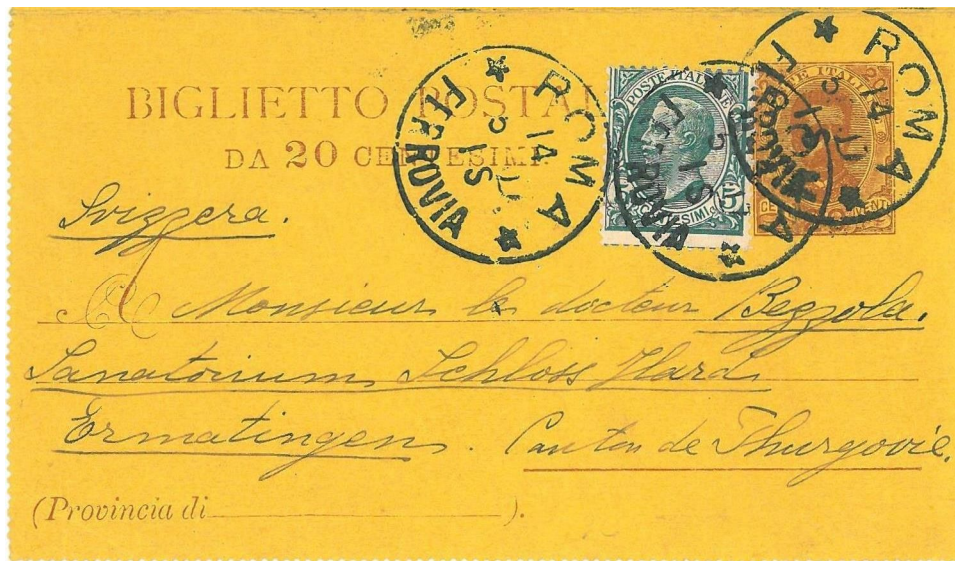 BIGLIETTO POSTALE
DA 20 CENTESIMI
ROMA
FERROVIA
14
POSTE ITALIANE
CENTESIMI 5
ROMA
FERROVIA
14
VENTI
Svizzera.
A Monsieur le docteur Bezzola.
Sanatorium Schloss Hard
Ermatingen. Canton de Thurgovie.
(Provincia di ).